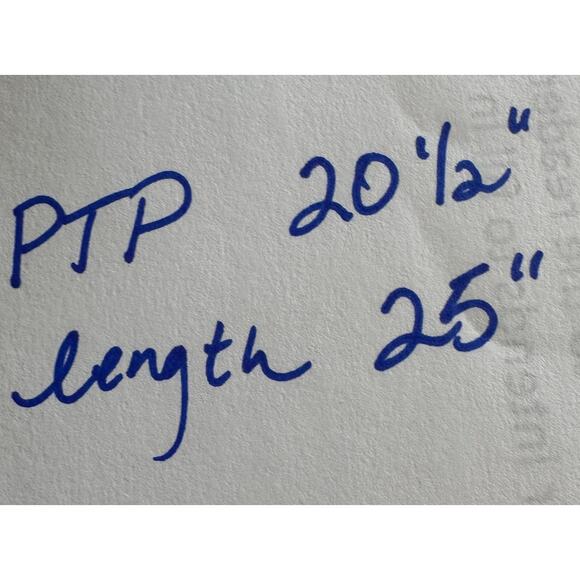 PTP 20 1/2"
length 25"